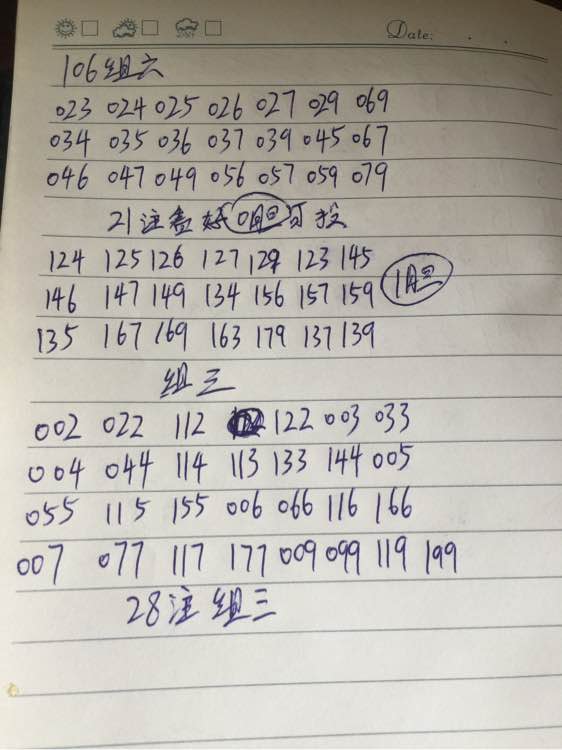 Date:
106组六
023 024 025 026 027 029 069
034 035 036 037 039 045 067
046 047 049 056 057 059 079
21注看好0胆可投
124 125 126 127 129 123 145
146 147 149 134 156 157 159 1胆
135 167 169 163 179 137 139
组三
002 022 112 122 003 033
004 044 114 113 133 144 005
055 115 155 006 066 116 166
007 077 117 177 009 099 119 199
28注组三